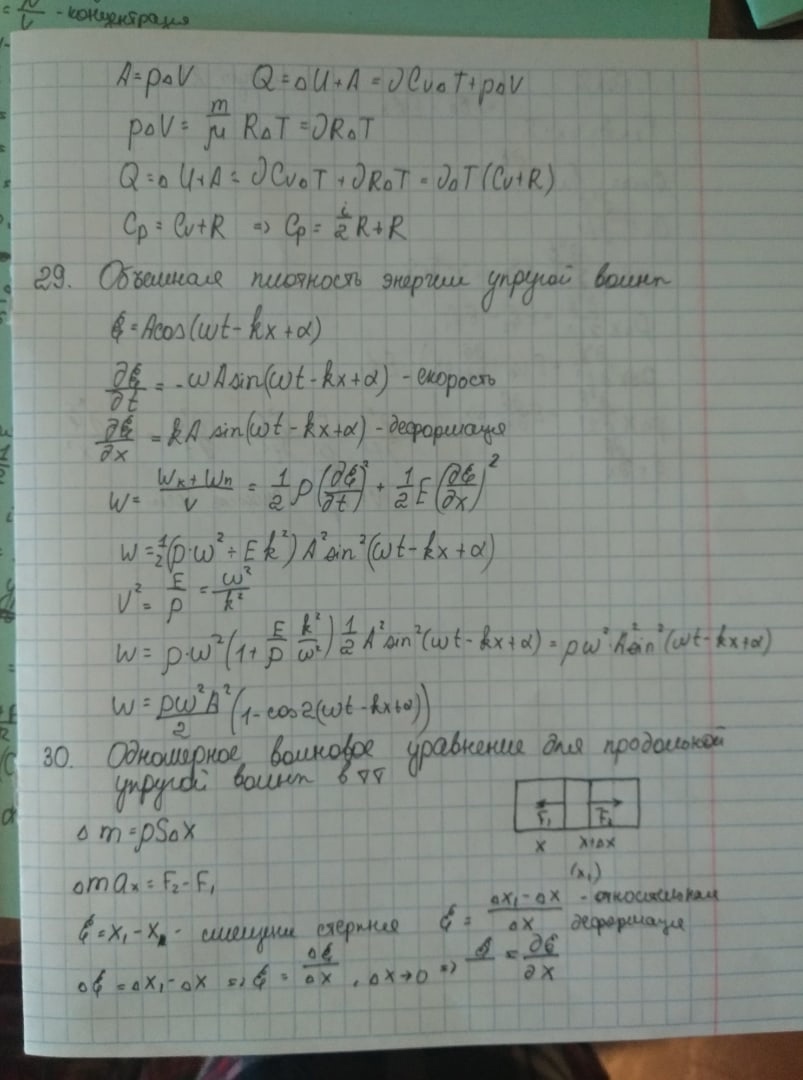 = N/V - концентрация
A = pΔV   Q = ΔU + A = ∂CvΔT + pΔV
pΔV = m/μ RΔT = ∂RΔT
Q = ΔU + A = ∂CvΔT + ∂RΔT = ∂ΔT(Cv+R)
Cp = Cv+R ⇒ Cp = i/2 R + R
29. Объемная плотность энергии упругой волны
ξ = Acos(ωt - kx + α)
∂ξ/∂t = -ωA sin(ωt - kx + α) - скорость
∂ξ/∂x = kA sin(ωt - kx + α) - деформация
W = (Wк + Wп)/V = 1/2 ρ(∂ξ/∂t)² + 1/2 E(∂ξ/∂x)²
W = 1/2(ρ·ω² + Ek²) A² sin²(ωt - kx + α)
V² = E/ρ = ω²/k²
W = ρ·ω²(1 + E/ρ k²/ω²) 1/2 A² sin²(ωt - kx + α) = ρω²·A² sin²(ωt - kx + α)
W = ρω²A²/2 (1 - cos2(ωt - kx + α))
30. Одномерное волновое уравнение для продольной
упругой волны в тт
F₁ F₂
x x+Δx
(x₁)
Δm = ρSΔx
Δm aₓ = F₂ - F₁
ξ = x₁ - x - смещение стержня   ξ = (Δx₁ - Δx)/Δx - относительная
деформация
Δξ = Δx₁ - Δx ⇒ ξ = Δξ/Δx , Δx → 0 ⇒ = ∂ξ/∂x